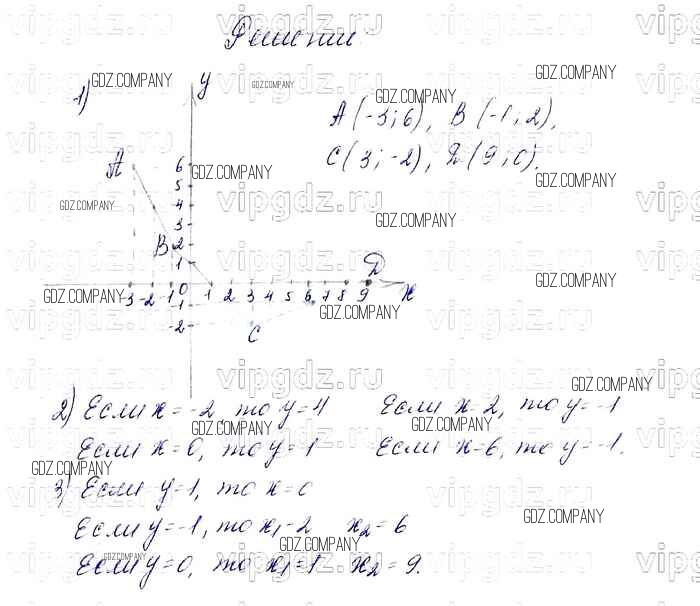 Решение.
1)
y
A (-3; 6), B (-1; 2),
C (3; -2), D (9; 0).
A
6
5
4
3
B 2
1
D
-3 -2 -1 0 1 2 3 4 5 6 7 8 9 x
-1
-2
C
2) Если x = -2, то y = 4 Если x = 2, то y = -1
Если x = 0, то y = 1 Если x = 6, то y = -1.
3) Если y = 1, то x = 0
Если y = -1, то x₁ = 2 x₂ = 6
Если y = 0, то x₁ = 1 x₂ = 9.
vipgdz.ru
GDZ.COMPANY